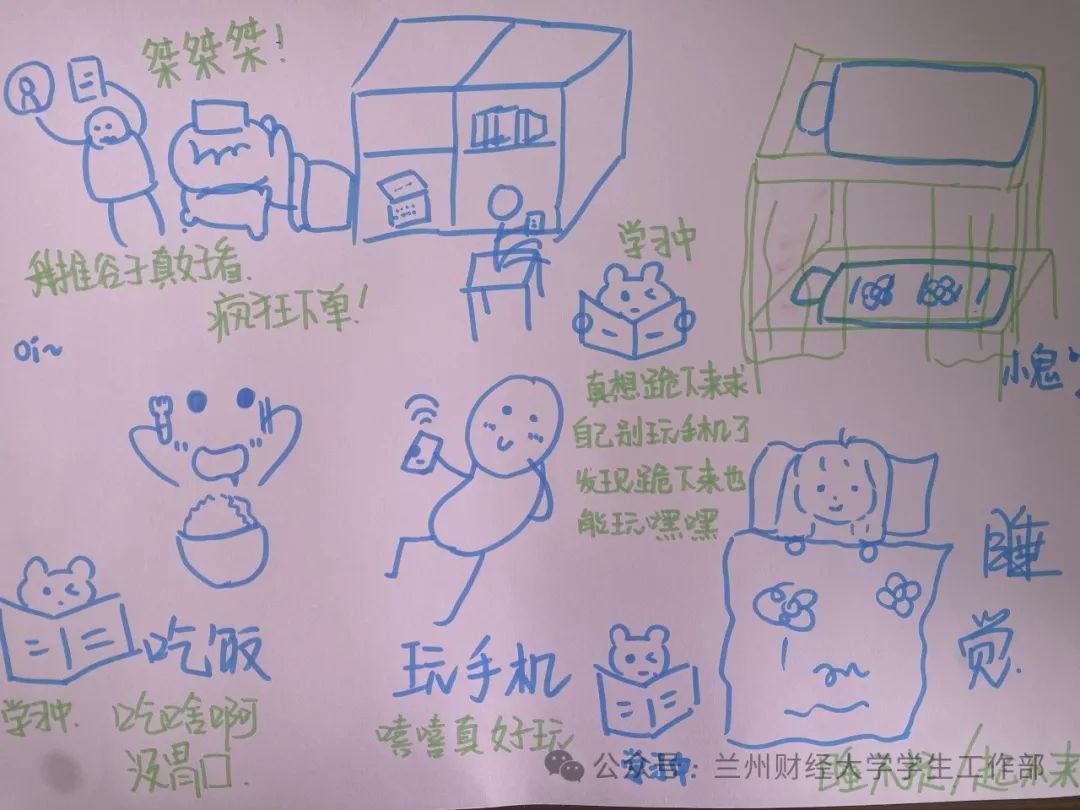 桀桀桀！
我推谷子真好看
疯狂下单！
oi~
学习中
真想跪下来求
自己别玩手机了
发现跪下来也
能玩嘿嘿
小鬼
吃饭
学习中
吃啥啊
没胃口
玩手机
嘻嘻真好玩
学习中
睡
觉
公众号：兰州财经大学学生工作部